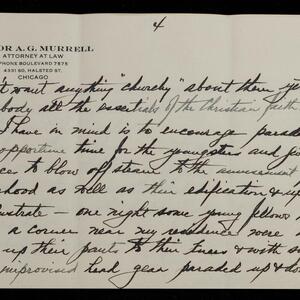 4
OR A. G. MURRELL
ATTORNEY AT LAW
PHONE BOULEVARD 7875
4331 SO. HALSTED ST.
CHICAGO
't want anything "churchy" about them ye
body all the essentials of the Christian faith
I have in mind is to encourage parad
opportune time for the youngsters and
ce to blow off steam to the amusement
hood as well as their edification & up
ustrate – one night some young fellows
a corner near my residence were
up their pants to their knees & with s
improvised head gear paraded up & do